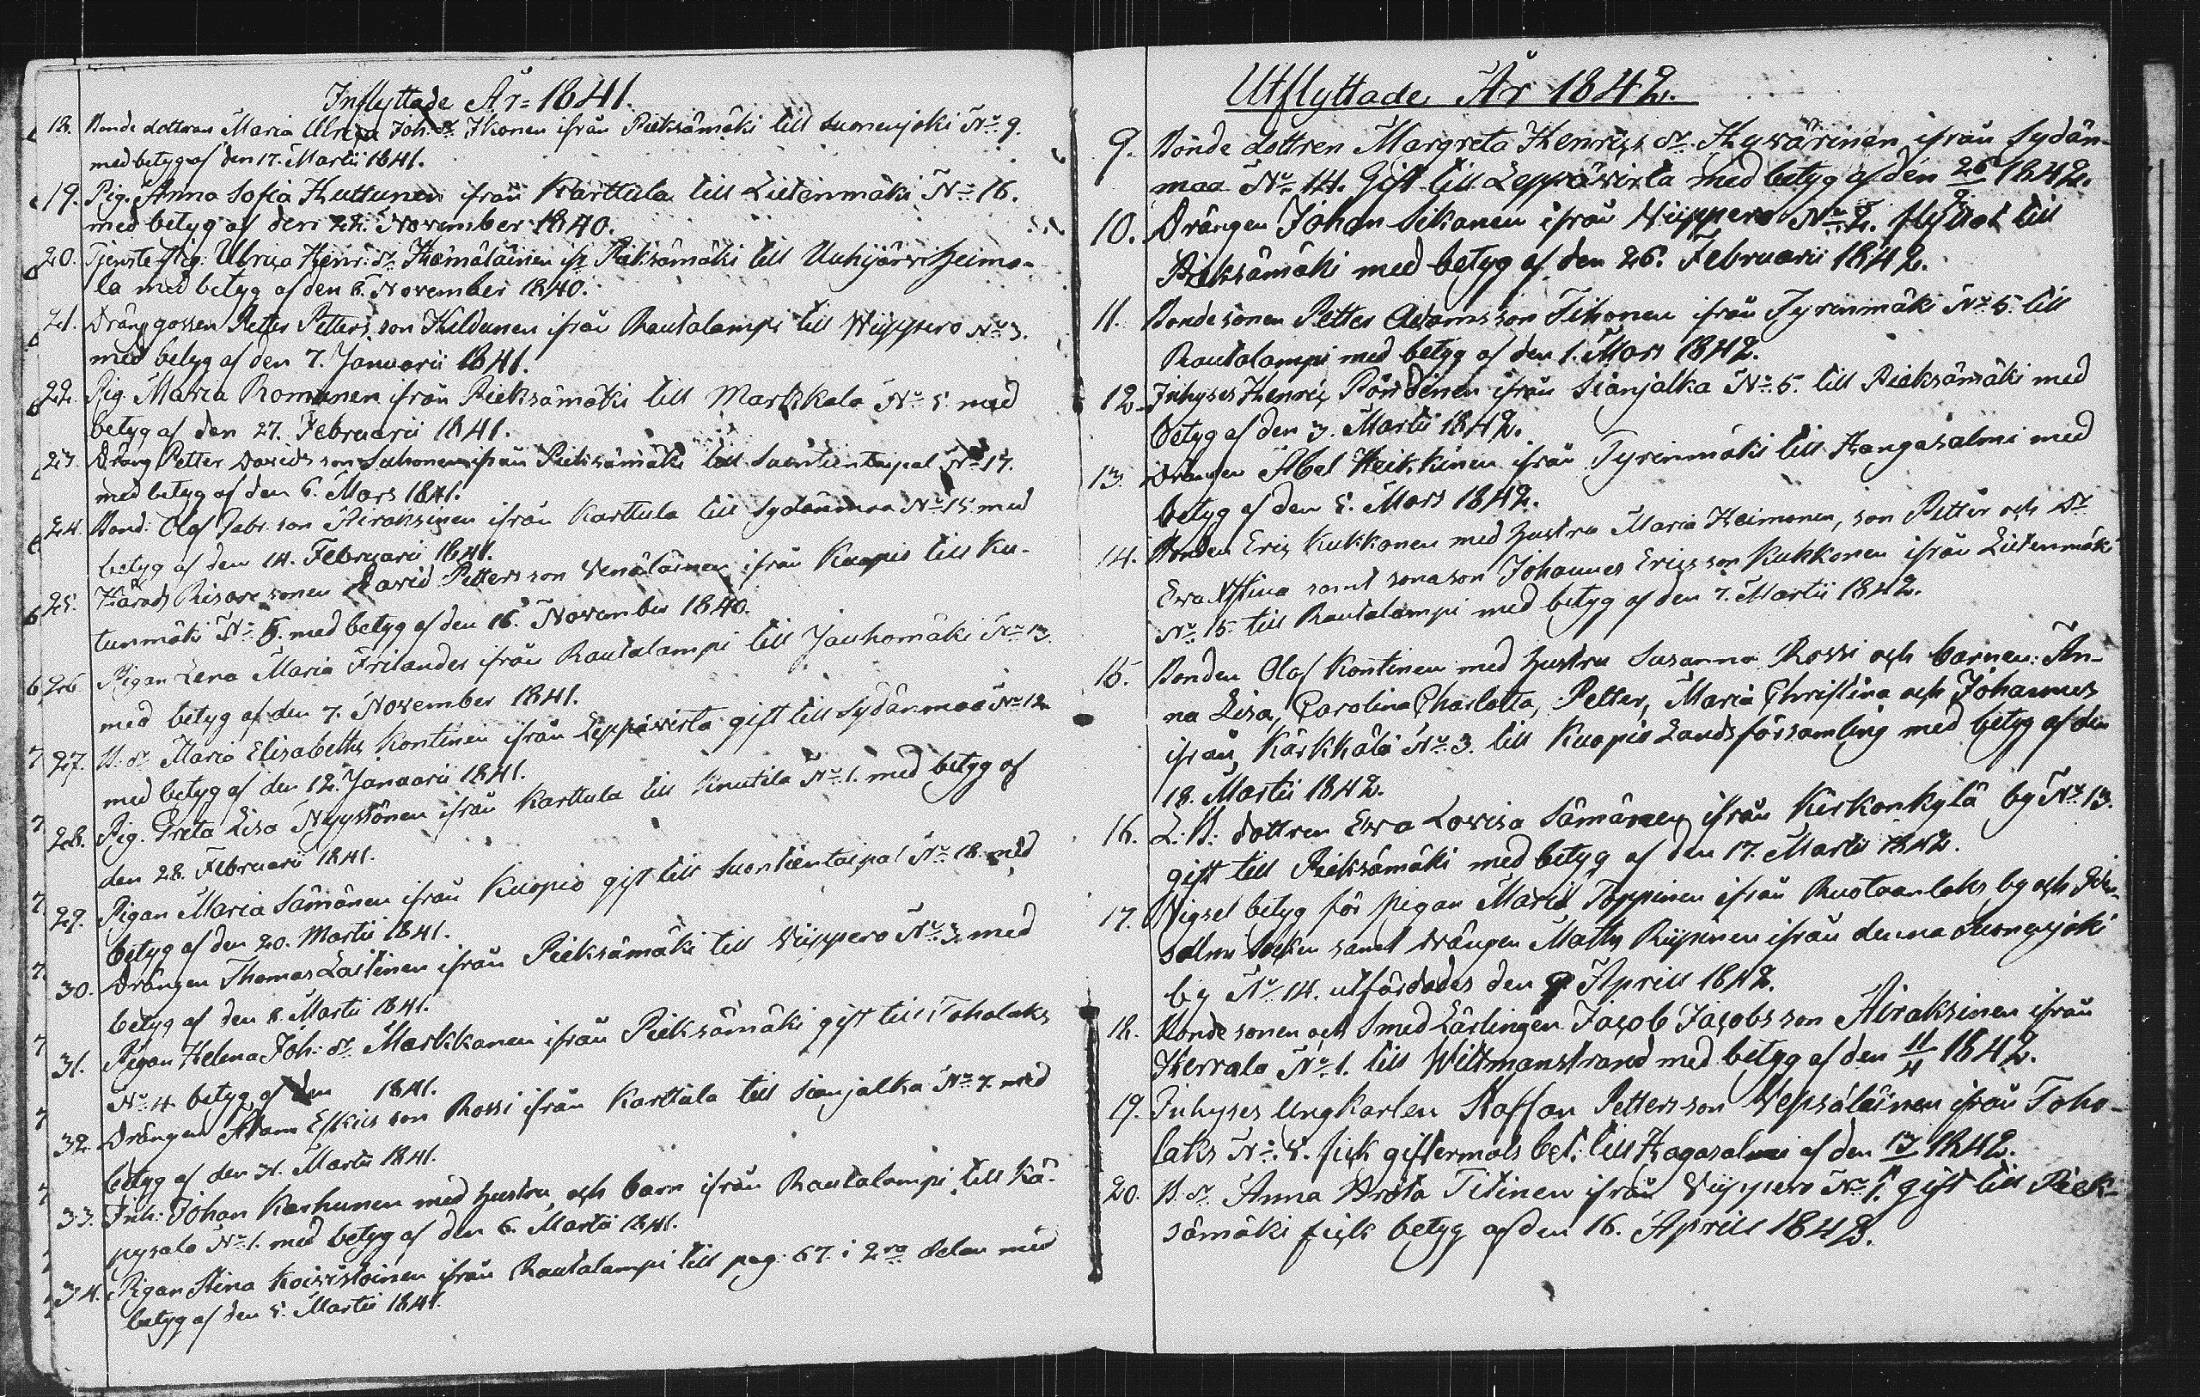 Inflyttade År 1841.
18. Bonde dottren Maria Ulrica Joh: dr Ikonen ifrån Pieksämäki till Suonenjoki No 9.
med betyg af den 17. Martii 1841.
19. Pig. Anna Sofia Huttunen ifrån Karttula till Lietenmäki No 16.
med betyg af den 22. November 1840.
20. Ulrica Henr: dr Hämäläinen fr Pieksämäki till Uuhijärvi Heimo-
la med betyg af den 8. November 1840.
21. Dräng gossen Petter Petters son Hildunen ifrån Rautalampi till Wiippero No 3.
med betyg af den 7. Januarii 1841.
22. Pig. Maria Romunen ifrån Pieksämäki till Markkala No 5 med
betyg af den 27. Februarii 1841.
23. Dräng Petter Davids son Suhonen ifrån Pieksämäki till Suontientaipal No 17.
med betyg af den 6. Mars 1841.
24. Bond: Olof Gabr. son Airaksinen ifrån Karttula till Sydänmaa No 15 med
betyg af den 14. Februarii 1841.
25. Härads Risare sonen David Petters son Venäläinen ifrån Kuopio till Ku-
tunmäki No 5. med betyg af den 16. November 1840.
26. Pigan Lena Maria Frilander ifrån Rautalampi till Jauhomäki No 13.
med betyg af den 7. November 1841.
27. B. dr Maria Elisabeth Kontinen ifrån Leppävirta gift till Sydänmaa No 12
med betyg af den 12. Januarii 1841.
28. Pig. Greta Lisa Nyyssönen ifrån Karttula till Knutila No 1. med betyg af
den 28. Februarii 1841.
29. Pigan Maria Sämänen ifrån Kuopio gift till Suontientaipal No 18. med
betyg af den 20. Martii 1841.
30. Drängen Thomas Laitinen ifrån Pieksämäki till Wiippero No 3. med
betyg af den 8. Martii 1841.
31. Pigan Helena Joh: dr Markkanen ifrån Pieksämäki gift till Toholaks
No 4 betyg af den 1841.
32. Drängen Adam Eskils son Rossi ifrån Karttula till Sianjalka No 7. med
betyg af den 31. Martii 1841.
33. Inh: Johan Karhunen med hustru och barn ifrån Rautalampi till Kä-
pysalo No 1. med betyg af den 6. Martii 1841.
34. Pigan Stina Koivistoinen ifrån Rautalampi till pag: 67. i 2ra delen med
betyg af den 5. Martii 1841.
Utflyttade År 1842.
9. Bonde dottren Margreta Henrics dr Hyvärinen ifrån Sydän-
maa No 14. Gift till Leppävirta med betyg af den 26/2 1842.
10. Drängen Johan Sekanen ifrån Wiippero No 2. flyttat till
Pieksämäki med betyg af den 26. Februarii 1842.
11. Bonde sonen Petter Adams son Tihonen ifrån Tyrinmäki No 5. till
Rautalampi med betyg af den 1. Mars 1842.
12. Inhyses Henric Pöndinen ifrån Sianjalka No 5. till Pieksämäki med
betyg af den 3. Martii 1842.
13. Drängen Abel Heikkinen ifrån Tyrinmäki till Hangasalmi med
betyg af den 5. Mars 1842.
14. Bonden Eric Kukkonen med hustru Maria Heimonen, son Petter och dr
Eva Stina samt sonason Johannes Erics son Kukkonen ifrån Lietenmäki
No 15. till Rautalampi med betyg af den 7. Martii 1842.
15. Bonden Olof Kontinen med hustru Susanna Rossi och barnen: An-
na Lisa, Carolina Charlotta, Petter, Maria Christina och Johannes
ifrån Kärkkälä No 3. till Kuopio Landsförsamling med betyg af den
18. Martii 1842.
16. L: B: dottren Eva Lovisa Sämänen ifrån Kirkonkylä by No 13.
gift till Pieksämäki med betyg af den 17. Martii 1842.
17. Vigsel betyg för pigan Maria Toppinen ifrån Ruotaanlaks by och
salmi Socken samt drängen Matts Riipinen ifrån denna Suonenjoki
by No 14. utfärdades den 9 April 1842.
18. Bonde sonen och Smed Lärlingen Jacob Jacobs son Airaksinen ifrån
Herrala No 1. till Willmanstrand med betyg af den 11/4 1842.
19. Inhyses Ungkarlen Staffan Petters son Vepsäläinen ifrån Toho-
laks No 8. fick giftermåls bet: till Hagasalmi af den 13/4 1842.
20. B. dr Anna Brita Titinen ifrån Wiippero No 1. gift till Piek-
sämäki fick betyg af den 16. April 1842.